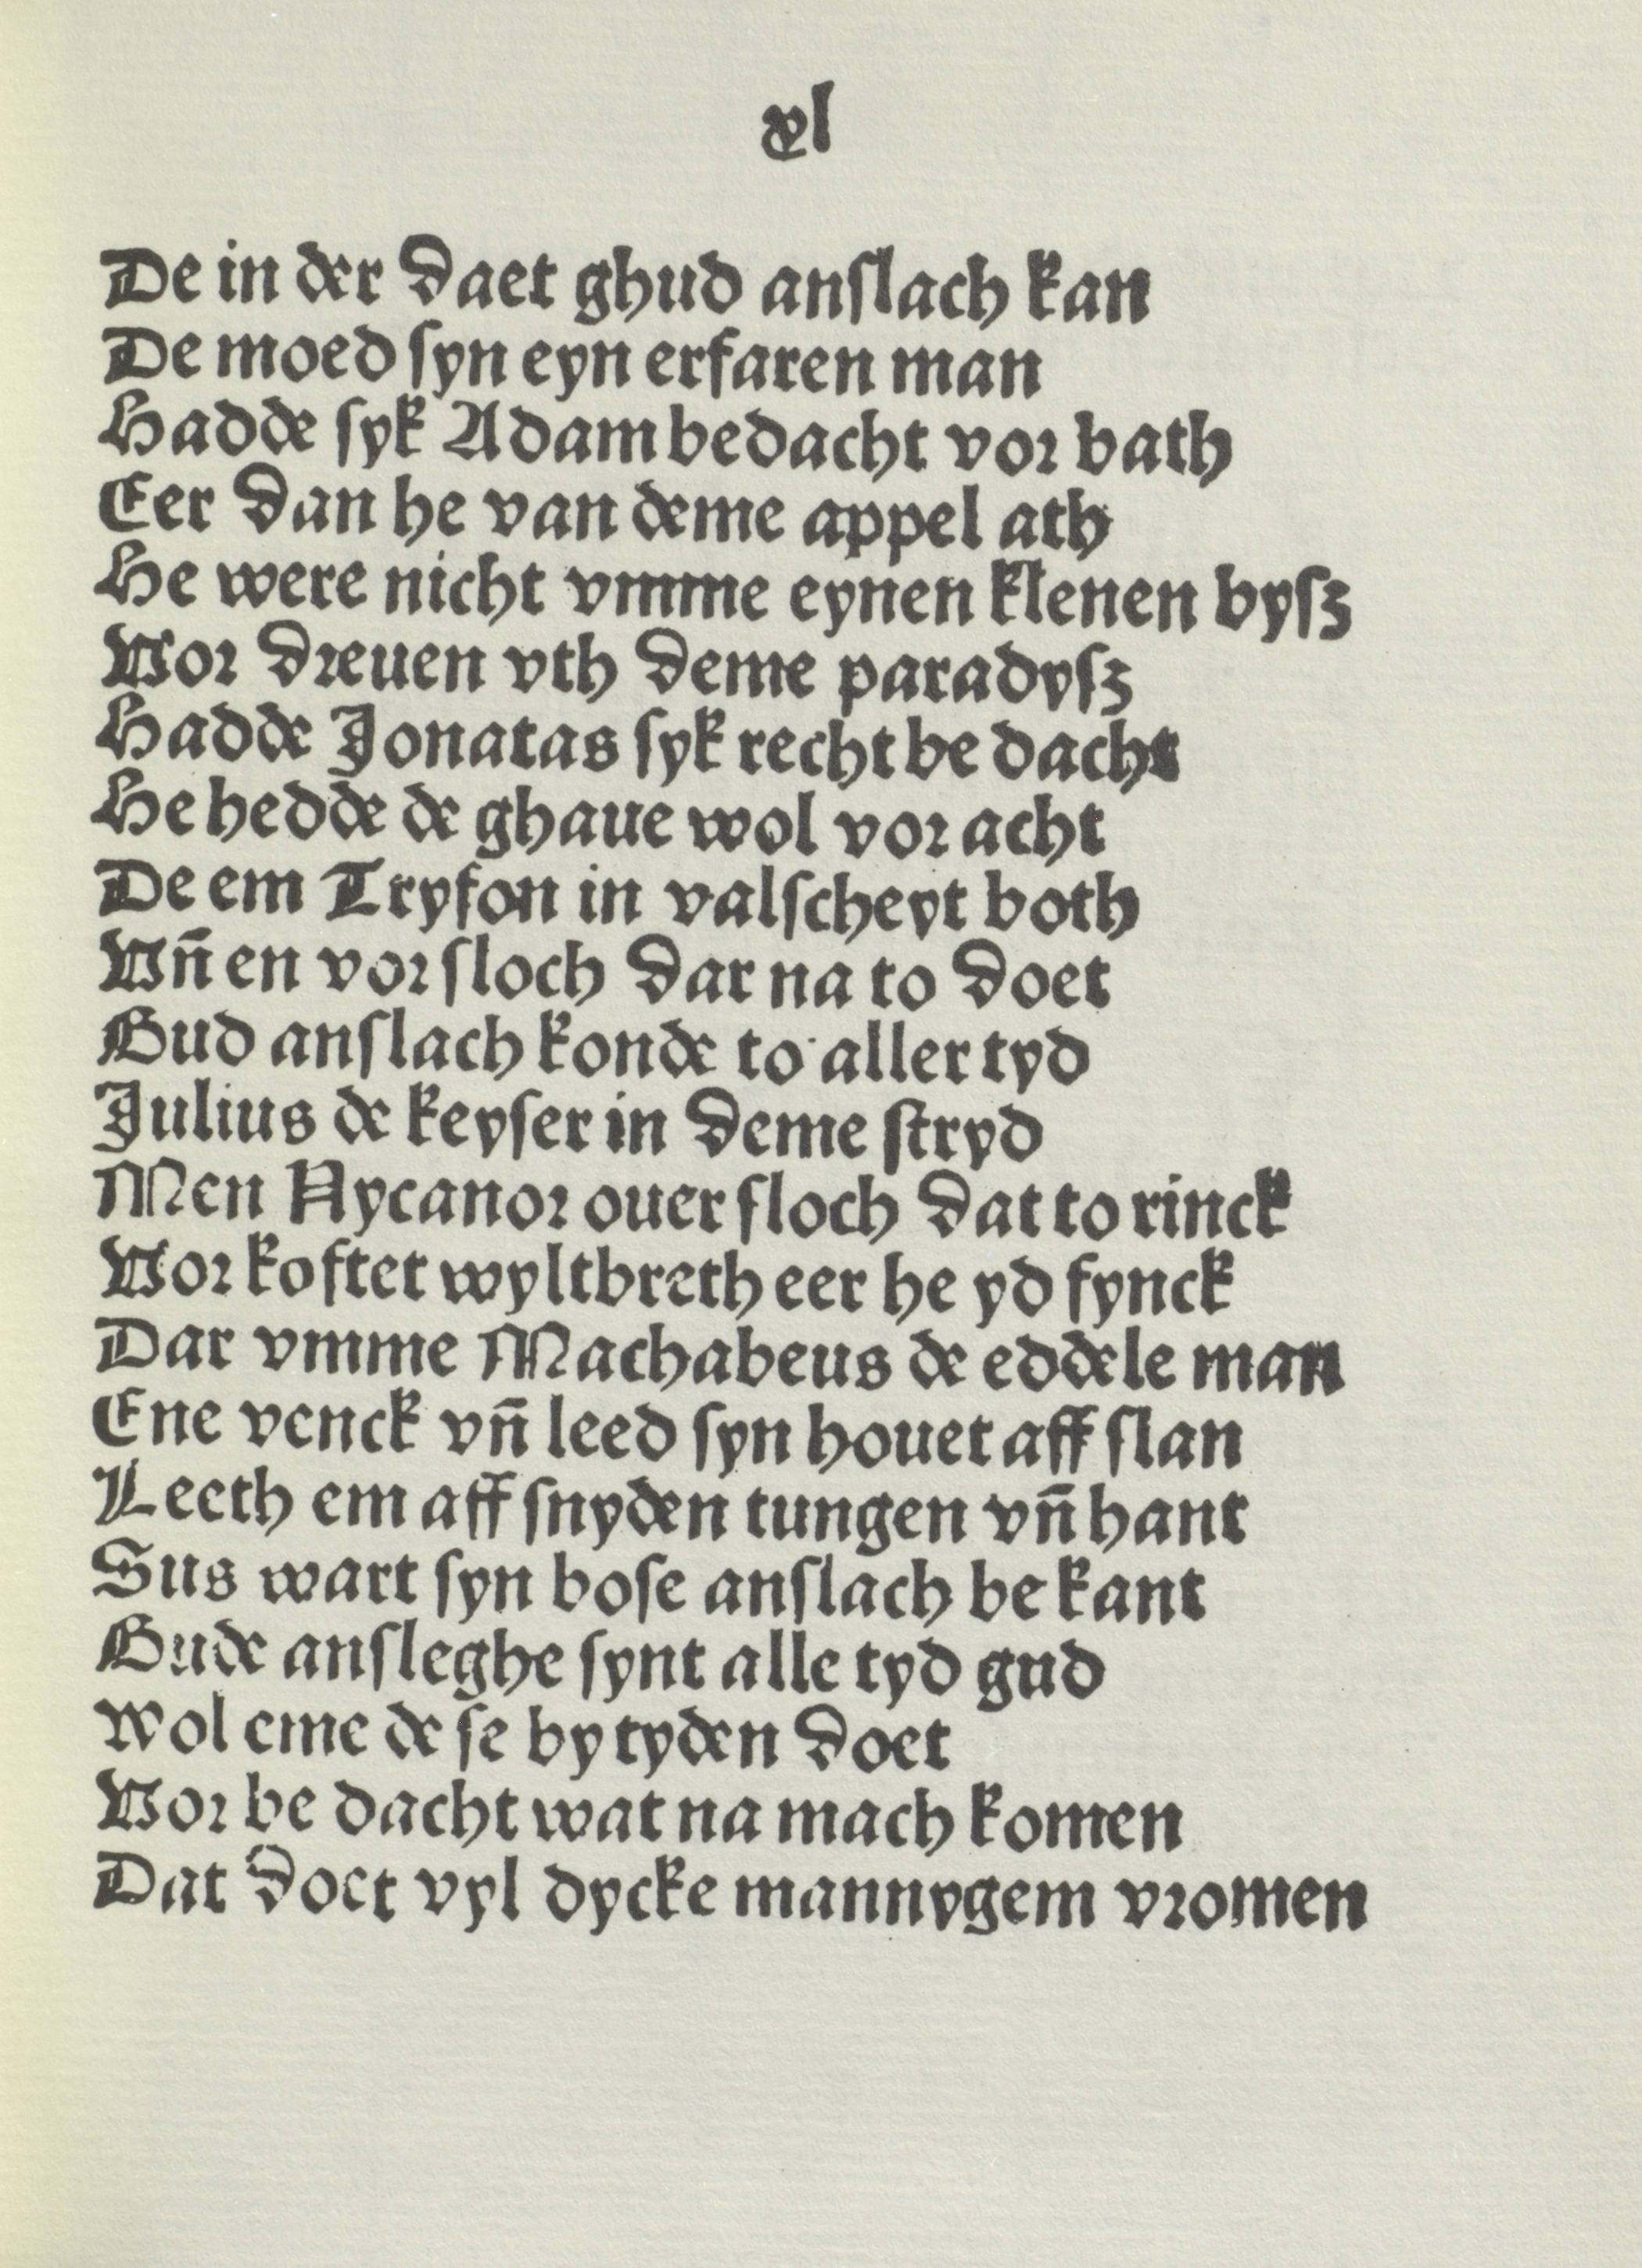 xl
De in der daet ghud anſlach kan
De moed ſyn eyn erfaren man
Hadde ſyk Adam bedacht vor bath
Eer dan he van deme appel ath
He were nicht vmme eynen klenen byſz
Vor dreuen vth deme paradyſz
Hadde Jonatas ſyk recht be dacht
He hedde de ghaue wol vor acht
De em Tryfon in valſcheyt both
Vn̄ en vor ſloch dar na to doet
Gud anſlach konde to aller tyd
Julius de keyſer in deme ſtryd
Men Nycanor ouer ſloch dat to rinck
Vor koftet wyltbreth eer he yd fynck
Dar vmme Machabeus de eddele man
Ene venck vn̄ leed ſyn houet aff ſlan
Leeth em aff ſnyden tungen vn̄ hant
Sus wart ſyn boſe anſlach be kant
Gude anſleghe ſynt alle tyd gud
Wol eme de ſe by tyden doet
Vor be dacht wat na mach komen
Dat doet vyl dycke mannygem vromen